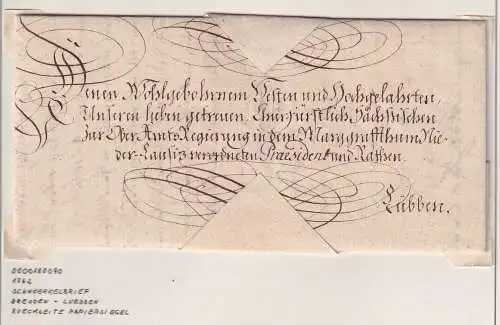 Denen Wohlgebohrnem Vesten und Hochgelahrten,
Unseren lieben getreuen Churfürstlich Sächsischen
zur Ober-Amts-Regierung in dem Marggraffthum Nie-
der-Lausiz verordneten Praesident und Räthen.
Lübben.
1762
SCHNÖRKELBRIEF
DRESDEN - LUEBBEN
RÜCKSEITE PAPIERSIEGEL